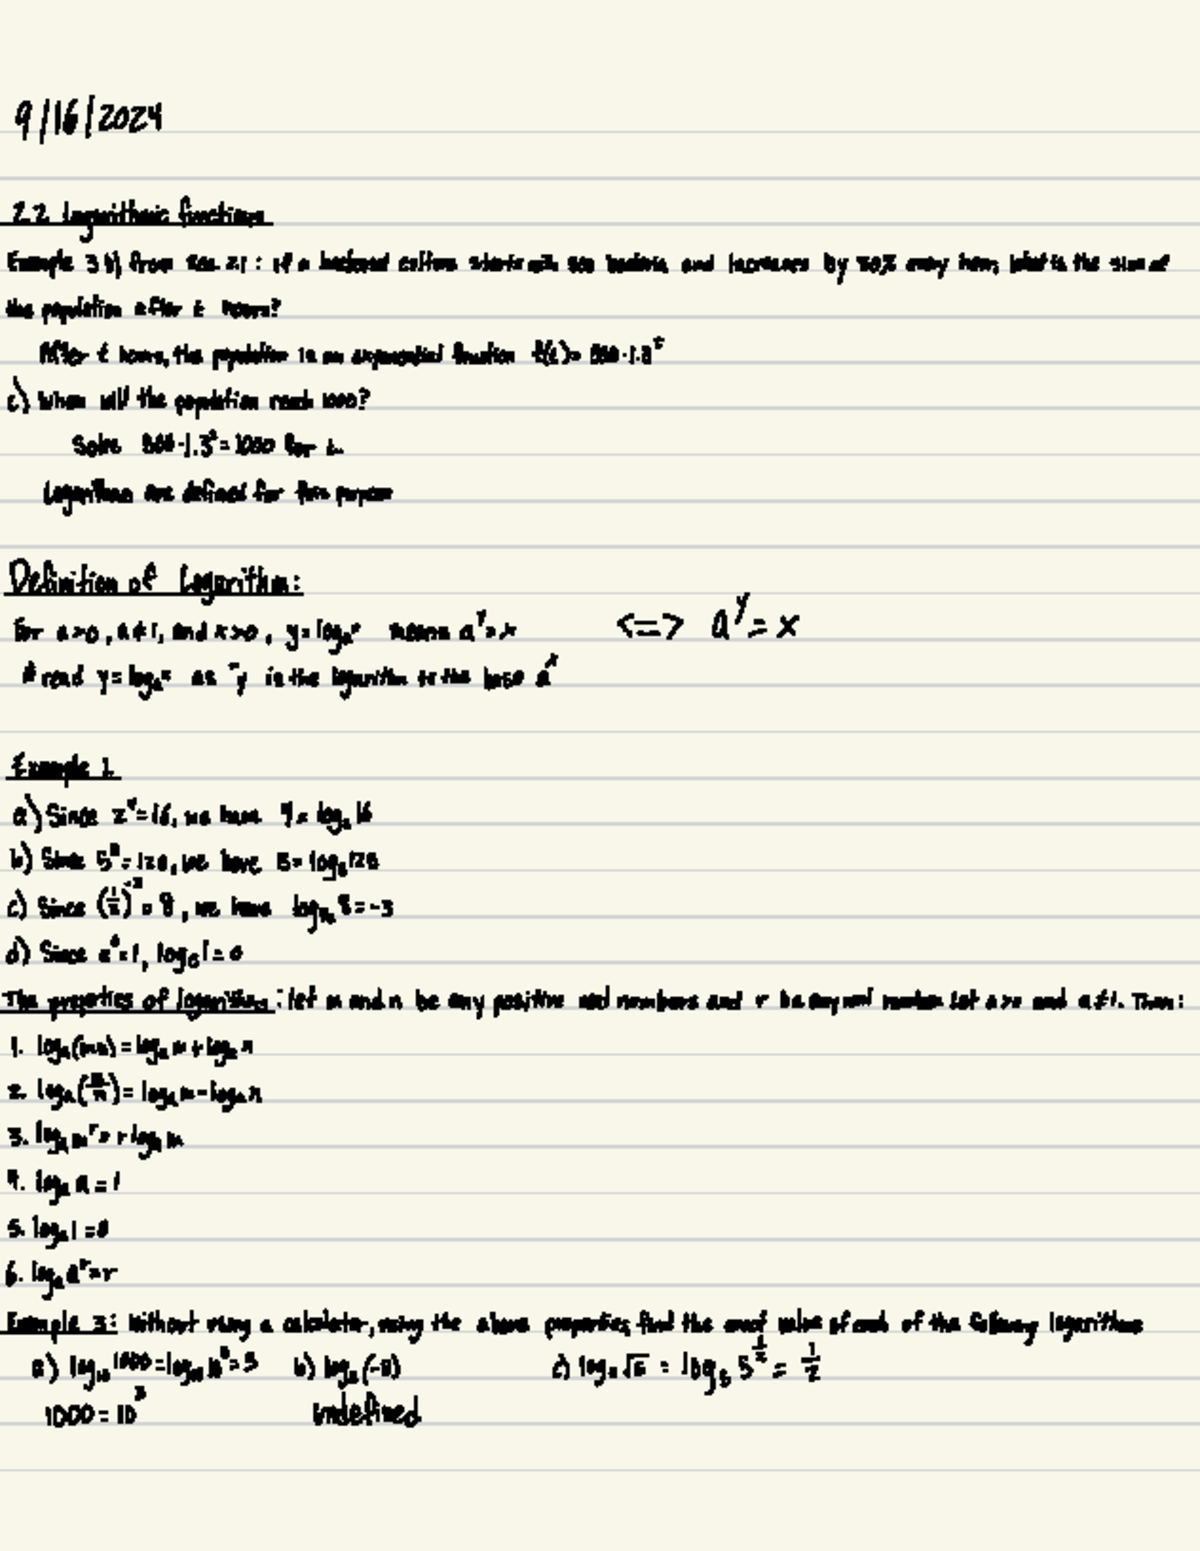 9/16/2024
2.2 Logarithmic functions
Example 3 b) from Sec. 2.1 : If a bacterial culture starts with 500 bacteria and increases by 30% every hour, what is the size of
the population after t hours?
After t hours, the population is an exponential function f(t)= 500·1.3^t
c) When will the population reach 1000?
Solve 500·1.3^t=1000 for t.
Logarithms are defined for this purpose
Definition of Logarithm:
For a>0, a≠1, and x>0, y=logₐx means a^y=x <=> a^y=x
# read y=logₐx as "y is the logarithm to the base a
Example 1
a) Since 2^4=16, we have 4=log₂16
b) Since 5^3=125, we have 3=log₅125
c) Since (1/2)^-3=8, we have log 8=-3
d) Since a^0=1, 1=0
The properties of logarithms: let m and n be any positive real numbers and r be any real number. Let a>0 and a≠1. Then:
1. logₐ(mn)=logₐm+logₐn
2. logₐ(m/n)=logₐm-logₐn
3. logₐm^r=r logₐm
4. logₐa=1
5. logₐ1=0
6. logₐa^r=r
Example 3: Without using a calculator, using the above properties, find the exact value of each of the following logarithms
a) log₁₀1000=log₁₀10^3=3 b) (-8) c) log₅√5 = log₅5^1/2 = 1/2
1000=10^3 Undefined